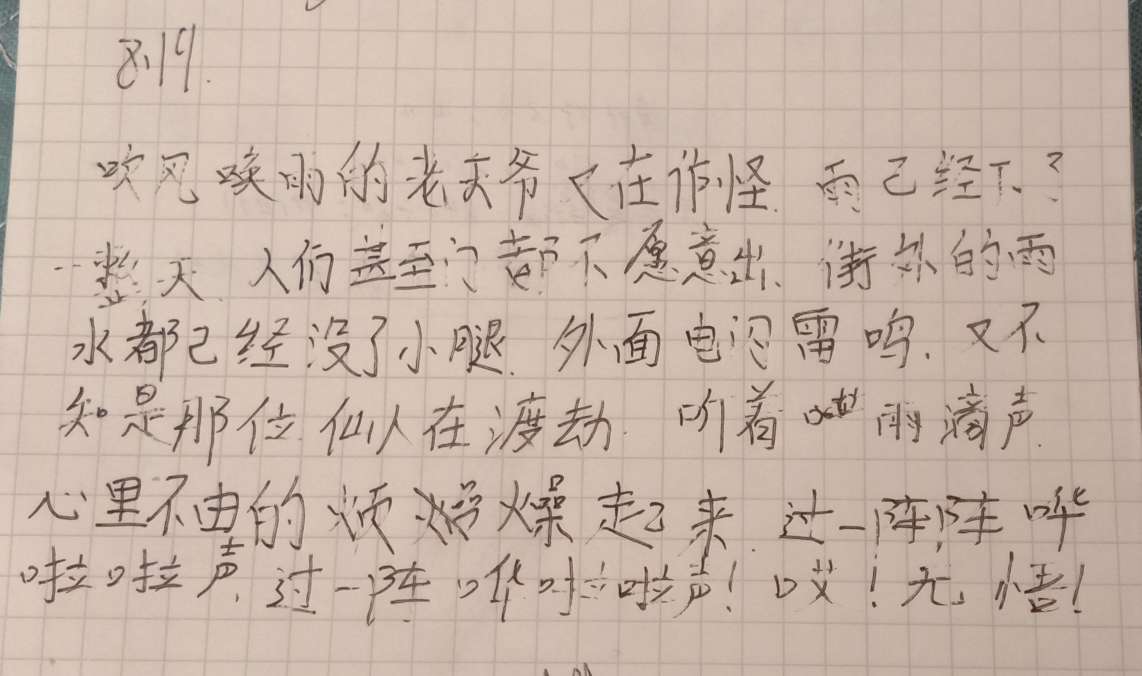 8.19.
吹风唤雨的老天爷又在作怪. 雨已经下了
一整天. 人们甚至门都不愿意出. 街外的雨
水都已经没了小腿. 外面电闪雷鸣. 又不
知是那位仙人在渡劫. 听着 雨滴声.
心里不由的烦 燥起来. 过一阵阵哗
啦啦声. 过一阵哗啦啦声! 哎! 无悟!